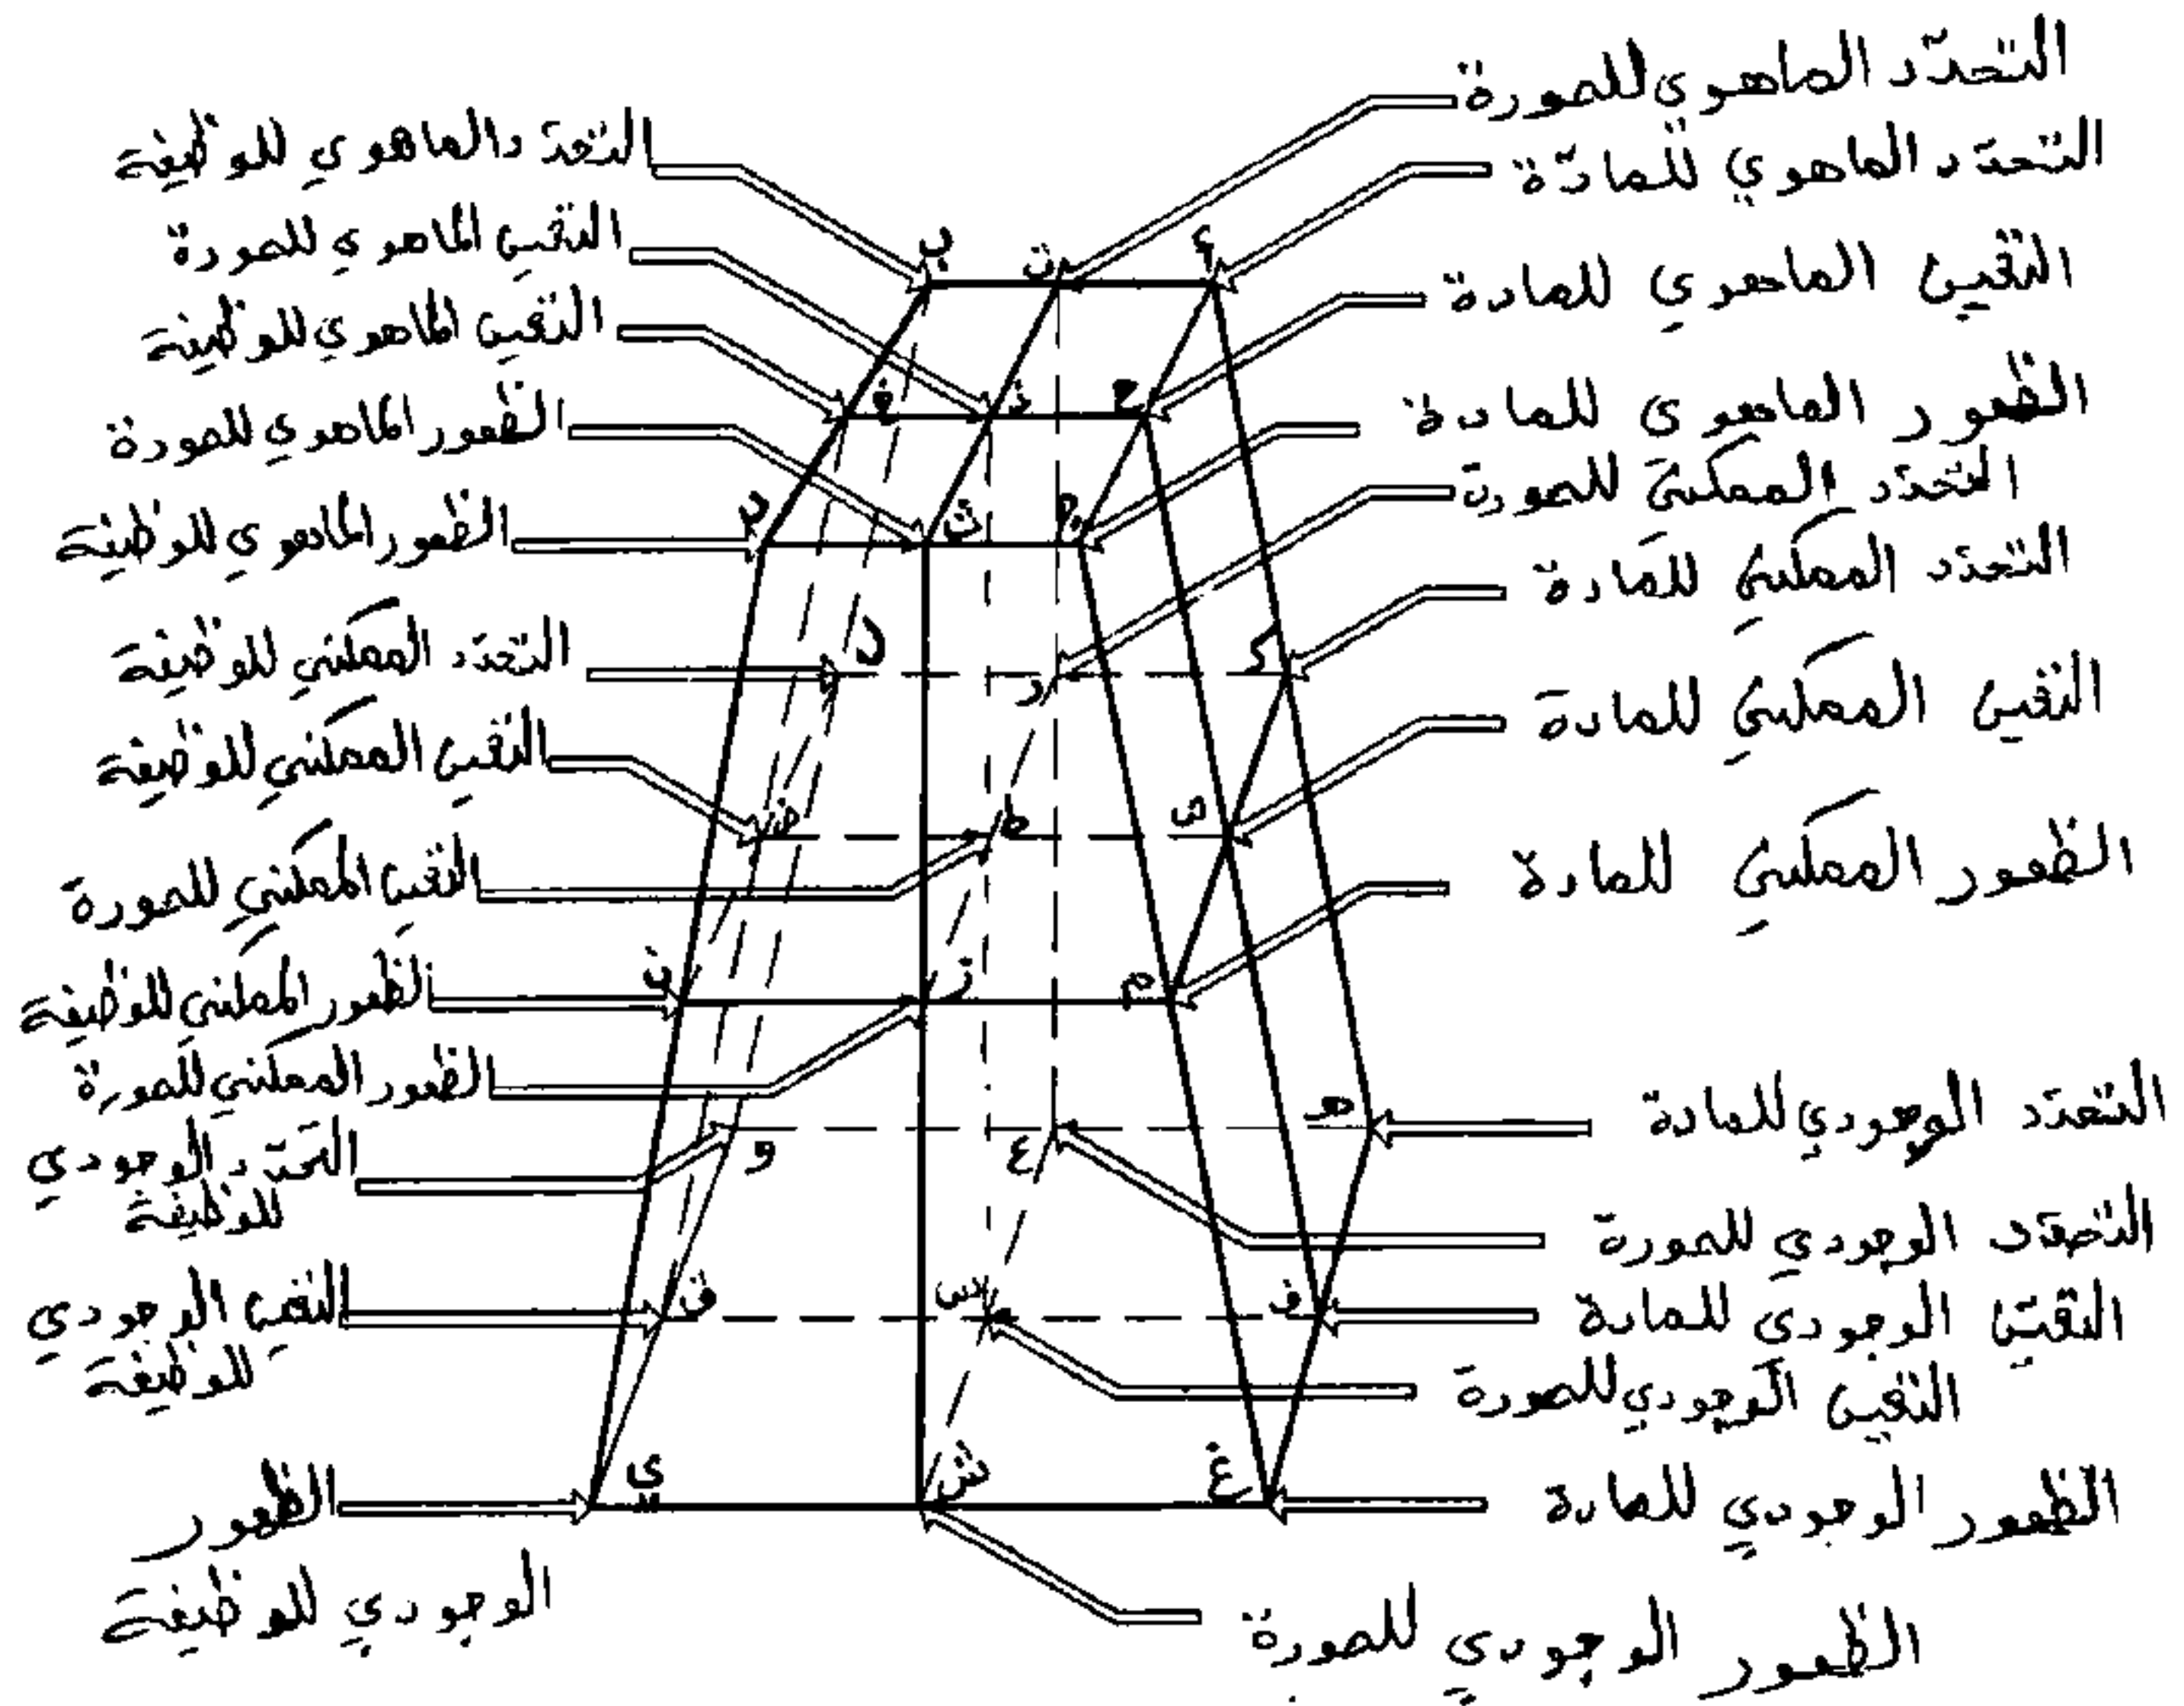 التحدّد الماهوي للصورة
التحدّد الماهوي للمادّة
التعين الماهوي للمادة
الظهور الماهوي للمادة
التحدّد الممكني للصورة
التحدّد الممكني للمادة
التعين الممكني للمادة
الظهور الممكني للمادة
التحدّد الوجودي للمادة
التحدّد الوجودي للصورة
التعيّن الوجودي للمادة
التعين الوجودي للصورة
الظهور الوجودي للمادة
الظهور الوجودي للصورة
التحدّد الماهوي للوظيفة
التعين الماهوي للصورة
التعين الماهوي للوظيفة
الظهور الماهوي للصورة
الظهور الماهوي للوظيفة
التحدّد الممكني للوظيفة
التعين الممكني للوظيفة
التعين الممكني للصورة
الظهور الممكني للوظيفة
الظهور الممكني للصورة
التحدّد الوجودي
للوظيفة
التعين الوجودي
للوظيفة
الظهور
الوجودي للوظيفة
ء ت ب
ح
ج ث د
ك ر ل
ص ط ض
م ز ن
هـ ع و
ف س ق
غ ش ي